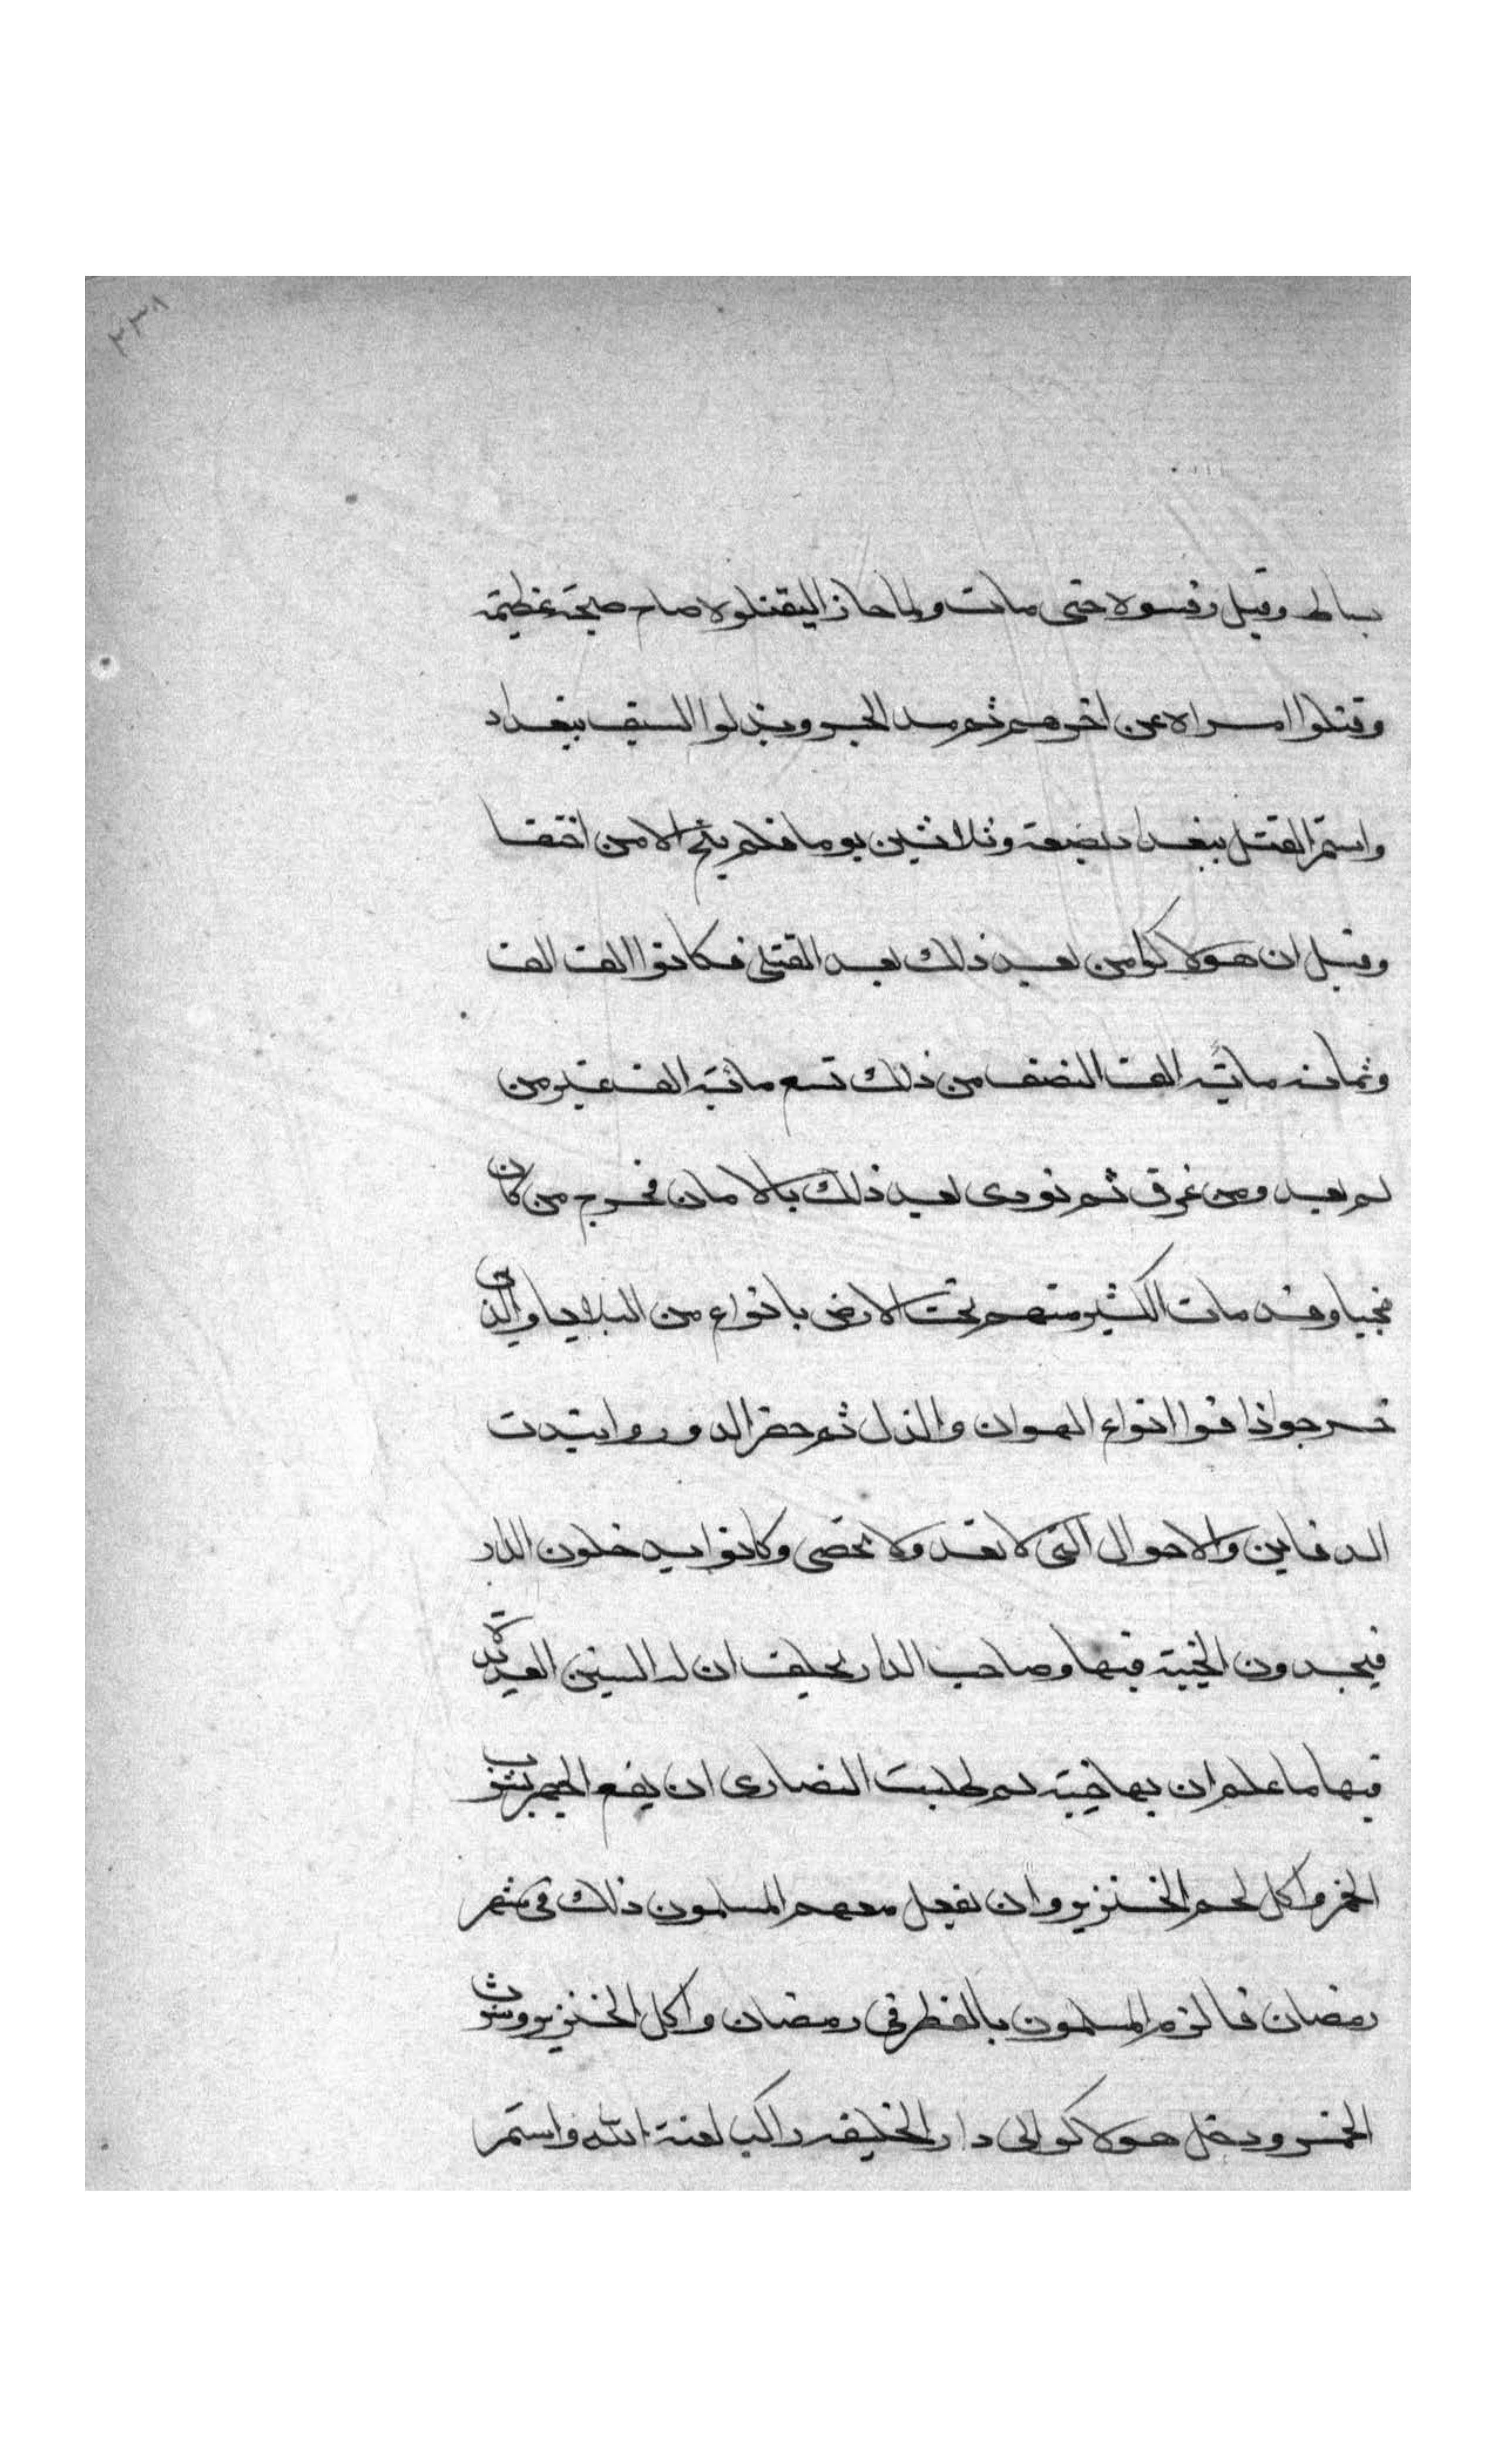 ٢٣٨
بساط وقيل رفسوه حتى مات ولما جاز اليقتلوه صاح صيحة عظيمة
وقتلوا امراه عن اخرهم ثم مد الجسر وبذلوا السيف ببغداد
واستمر القتل ببغداد بضعة وثلاثين يوما فلم ينج الا من اختفا
وقيل ان هولاكو امر بعد ذلك بعد القتلى فكانوا الف الف
وثمان ماية الف النصف من ذلك تسع ماية الف غير من
لم يعد ومن غرق ثم نودى بعد ذلك بالامان فخرج من كان
مخبيا وقد مات الكثير منهم تحت الارض بانواع من البلايا والذين
خرجوا ذاقوا انواع الهوان والذل ثم حفر الدور وابتدت
الدفاين والاموال التى لا تعد ولا تحصى وكانوا يدخلون الدار
فيجدون الخبية فيها وصاحب الدار يحلف ان له السنين العديدة
فيها ما علم ان بها خبية ثم طلبت النصارى ان يقع الجهر بشرب
الخمر واكل لحم الخنزير وان يفعل معهم المسلمون ذلك فى شهر
رمضان فالزم المسلمون بالفطر فى رمضان واكل الخنزير وشرب
الخمر ودخل هولاكو الى دار الخليفة راكب لعنة الله واستمر